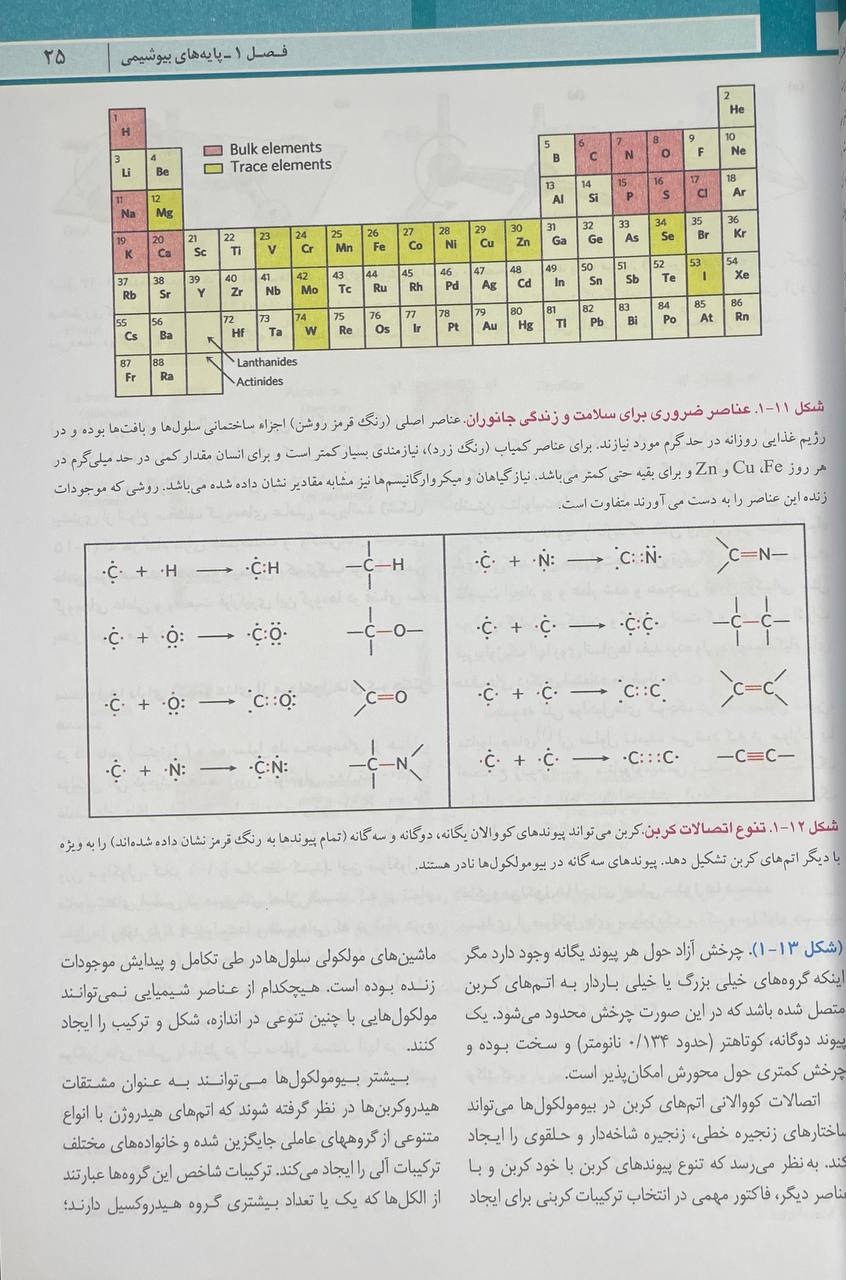 فصل ۱ - پایه‌های بیوشیمی | ۲۵
Bulk elements
Trace elements
1 H 2 He
3 Li 4 Be 5 B 6 C 7 N 8 O 9 F 10 Ne
11 Na 12 Mg 13 Al 14 Si 15 P 16 S 17 Cl 18 Ar
19 K 20 Ca 21 Sc 22 Ti 23 V 24 Cr 25 Mn 26 Fe 27 Co 28 Ni 29 Cu 30 Zn 31 Ga 32 Ge 33 As 34 Se 35 Br 36 Kr
37 Rb 38 Sr 39 Y 40 Zr 41 Nb 42 Mo 43 Tc 44 Ru 45 Rh 46 Pd 47 Ag 48 Cd 49 In 50 Sn 51 Sb 52 Te 53 I 54 Xe
55 Cs 56 Ba 72 Hf 73 Ta 74 W 75 Re 76 Os 77 Ir 78 Pt 79 Au 80 Hg 81 Tl 82 Pb 83 Bi 84 Po 85 At 86 Rn
87 Fr 88 Ra
Lanthanides
Actinides
شکل ۱۱-۱. عناصر ضروری برای سلامت و زندگی جانوران. عناصر اصلی (رنگ قرمز روشن) اجزاء ساختمانی سلول‌ها و بافت‌ها بوده و در
رژیم غذایی روزانه در حد گرم مورد نیازند. برای عناصر کمیاب (رنگ زرد)، نیازمندی بسیار کمتر است و برای انسان مقدار کمی در حد میلی‌گرم در
هر روز Cu ،Fe و Zn و برای بقیه حتی کمتر می‌باشد. نیاز گیاهان و میکروارگانیسم‌ها نیز مشابه مقادیر نشان داده شده می‌باشد. روشی که موجودات
زنده این عناصر را به دست می‌آورند متفاوت است.
·C· + ·H ⟶ ·C:H –C–H
·C· + ·O: ⟶ ·C:O· –C–O–
·C· + ·O: ⟶ C::O: C=O
·C· + ·N: ⟶ ·C:N: –C–N
·C· + ·N: ⟶ C::N· C=N–
·C· + ·C· ⟶ ·C:C· –C–C–
·C· + ·C· ⟶ C::C C=C
·C· + ·C· ⟶ ·C:::C· –C≡C–
شکل ۱۲-۱. تنوع اتصالات کربن. کربن می‌تواند پیوندهای کووالان یگانه، دوگانه و سه‌گانه (تمام پیوندها به رنگ قرمز نشان داده شده‌اند) را به ویژه
با دیگر اتم‌های کربن تشکیل دهد. پیوندهای سه‌گانه در بیومولکول‌ها نادر هستند.
(شکل ۱۳-۱). چرخش آزاد حول هر پیوند یگانه وجود دارد مگر
اینکه گروه‌های خیلی بزرگ یا خیلی باردار به اتم‌های کربن
متصل شده باشد که در این صورت چرخش محدود می‌شود. یک
پیوند دوگانه، کوتاهتر (حدود ۰/۱۳۴ نانومتر) و سخت بوده و
چرخش کمتری حول محورش امکان‌پذیر است.
اتصالات کووالانی اتم‌های کربن در بیومولکول‌ها می‌تواند
ساختارهای زنجیره خطی، زنجیره شاخه‌دار و حلقوی را ایجاد
کند. به نظر می‌رسد که تنوع پیوندهای کربن با خود کربن و با
عناصر دیگر، فاکتور مهمی در انتخاب ترکیبات کربنی برای ایجاد
ماشین‌های مولکولی سلول‌ها در طی تکامل و پیدایش موجودات
زنده بوده است. هیچکدام از عناصر شیمیایی نمی‌توانند
مولکول‌هایی با چنین تنوعی در اندازه، شکل و ترکیب را ایجاد
کنند.
بیشتر بیومولکول‌ها می‌توانند به عنوان مشتقات
هیدروکربن‌ها در نظر گرفته شوند که اتم‌های هیدروژن با انواع
متنوعی از گروههای عاملی جایگزین شده و خانواده‌های مختلف
ترکیبات آلی را ایجاد می‌کند. ترکیبات شاخص این گروه‌ها عبارتند
از الکل‌ها که یک یا تعداد بیشتری گروه هیدروکسیل دارند؛